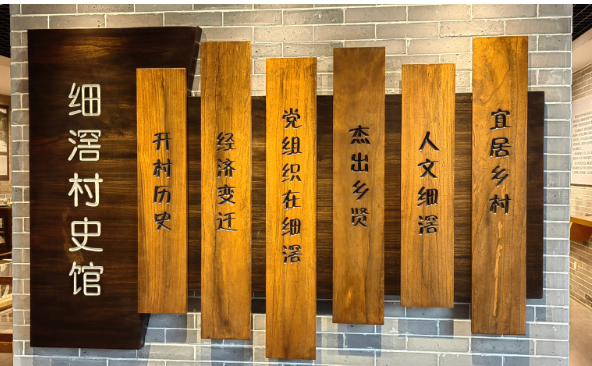 细滘村史馆
开村历史
经济变迁
党组织在细滘
杰出乡贤
人文细滘
宜居乡村